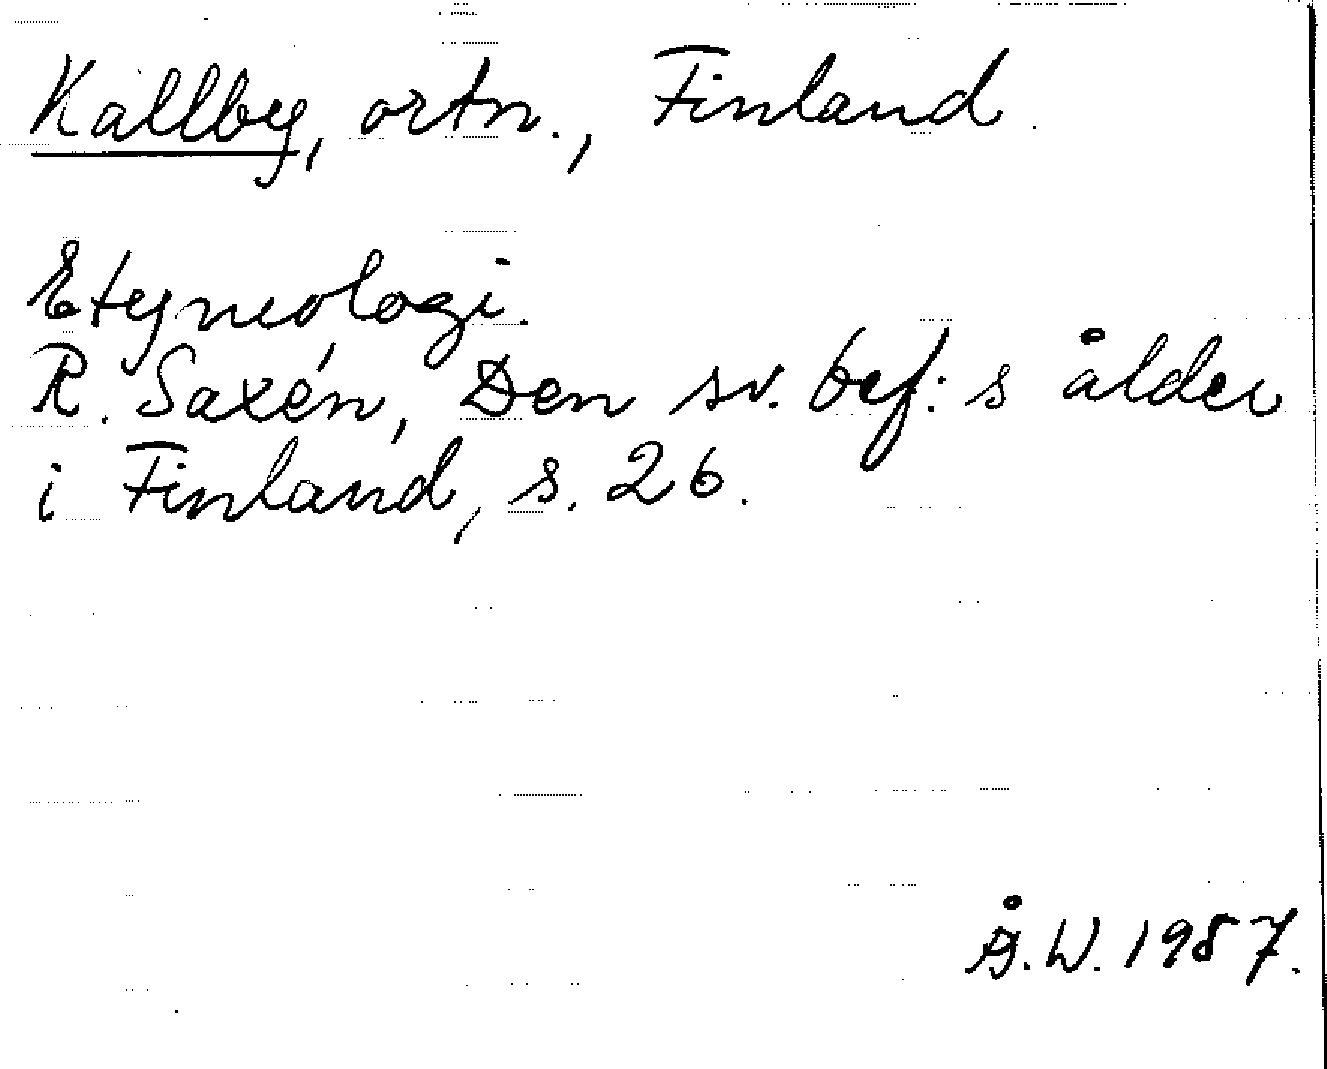 Kållby, ortn., Finland.
Etymologi.
R. Saxén, Den sv. bef:s ålder
i Finland, s. 26.
Å.W. 1987.